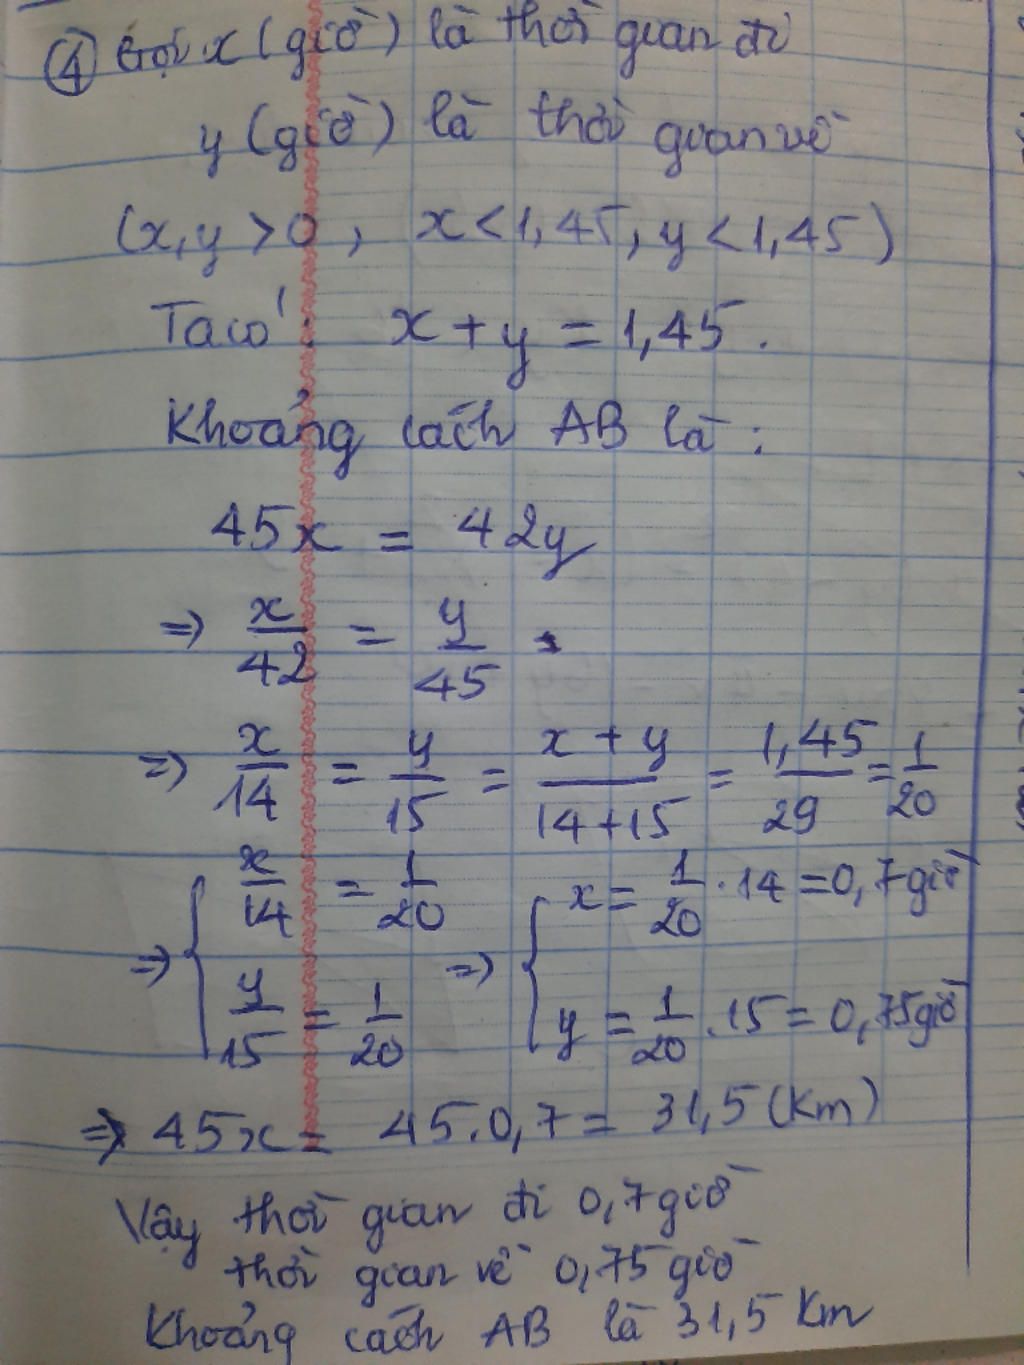 ④ Gọi x (giờ) là thời gian đi
y (giờ) là thời gian về
(x, y > 0, x < 1,45, y < 1,45)
Ta có: x + y = 1,45.
Khoảng cách AB là:
45x = 42y
⇒ x/42 = y/45
⇒ x/14 = y/15 = (x + y)/(14 + 15) = 1,45/29 = 1/20
⇒ { x/14 = 1/20 ⇒ { x = 1/20 . 14 = 0,7 giờ
y/15 = 1/20 y = 1/20 . 15 = 0,75 giờ
⇒ 45x = 45.0,7 = 31,5 (Km)
Vậy thời gian đi 0,7 giờ
thời gian về 0,75 giờ
Khoảng cách AB là 31,5 Km